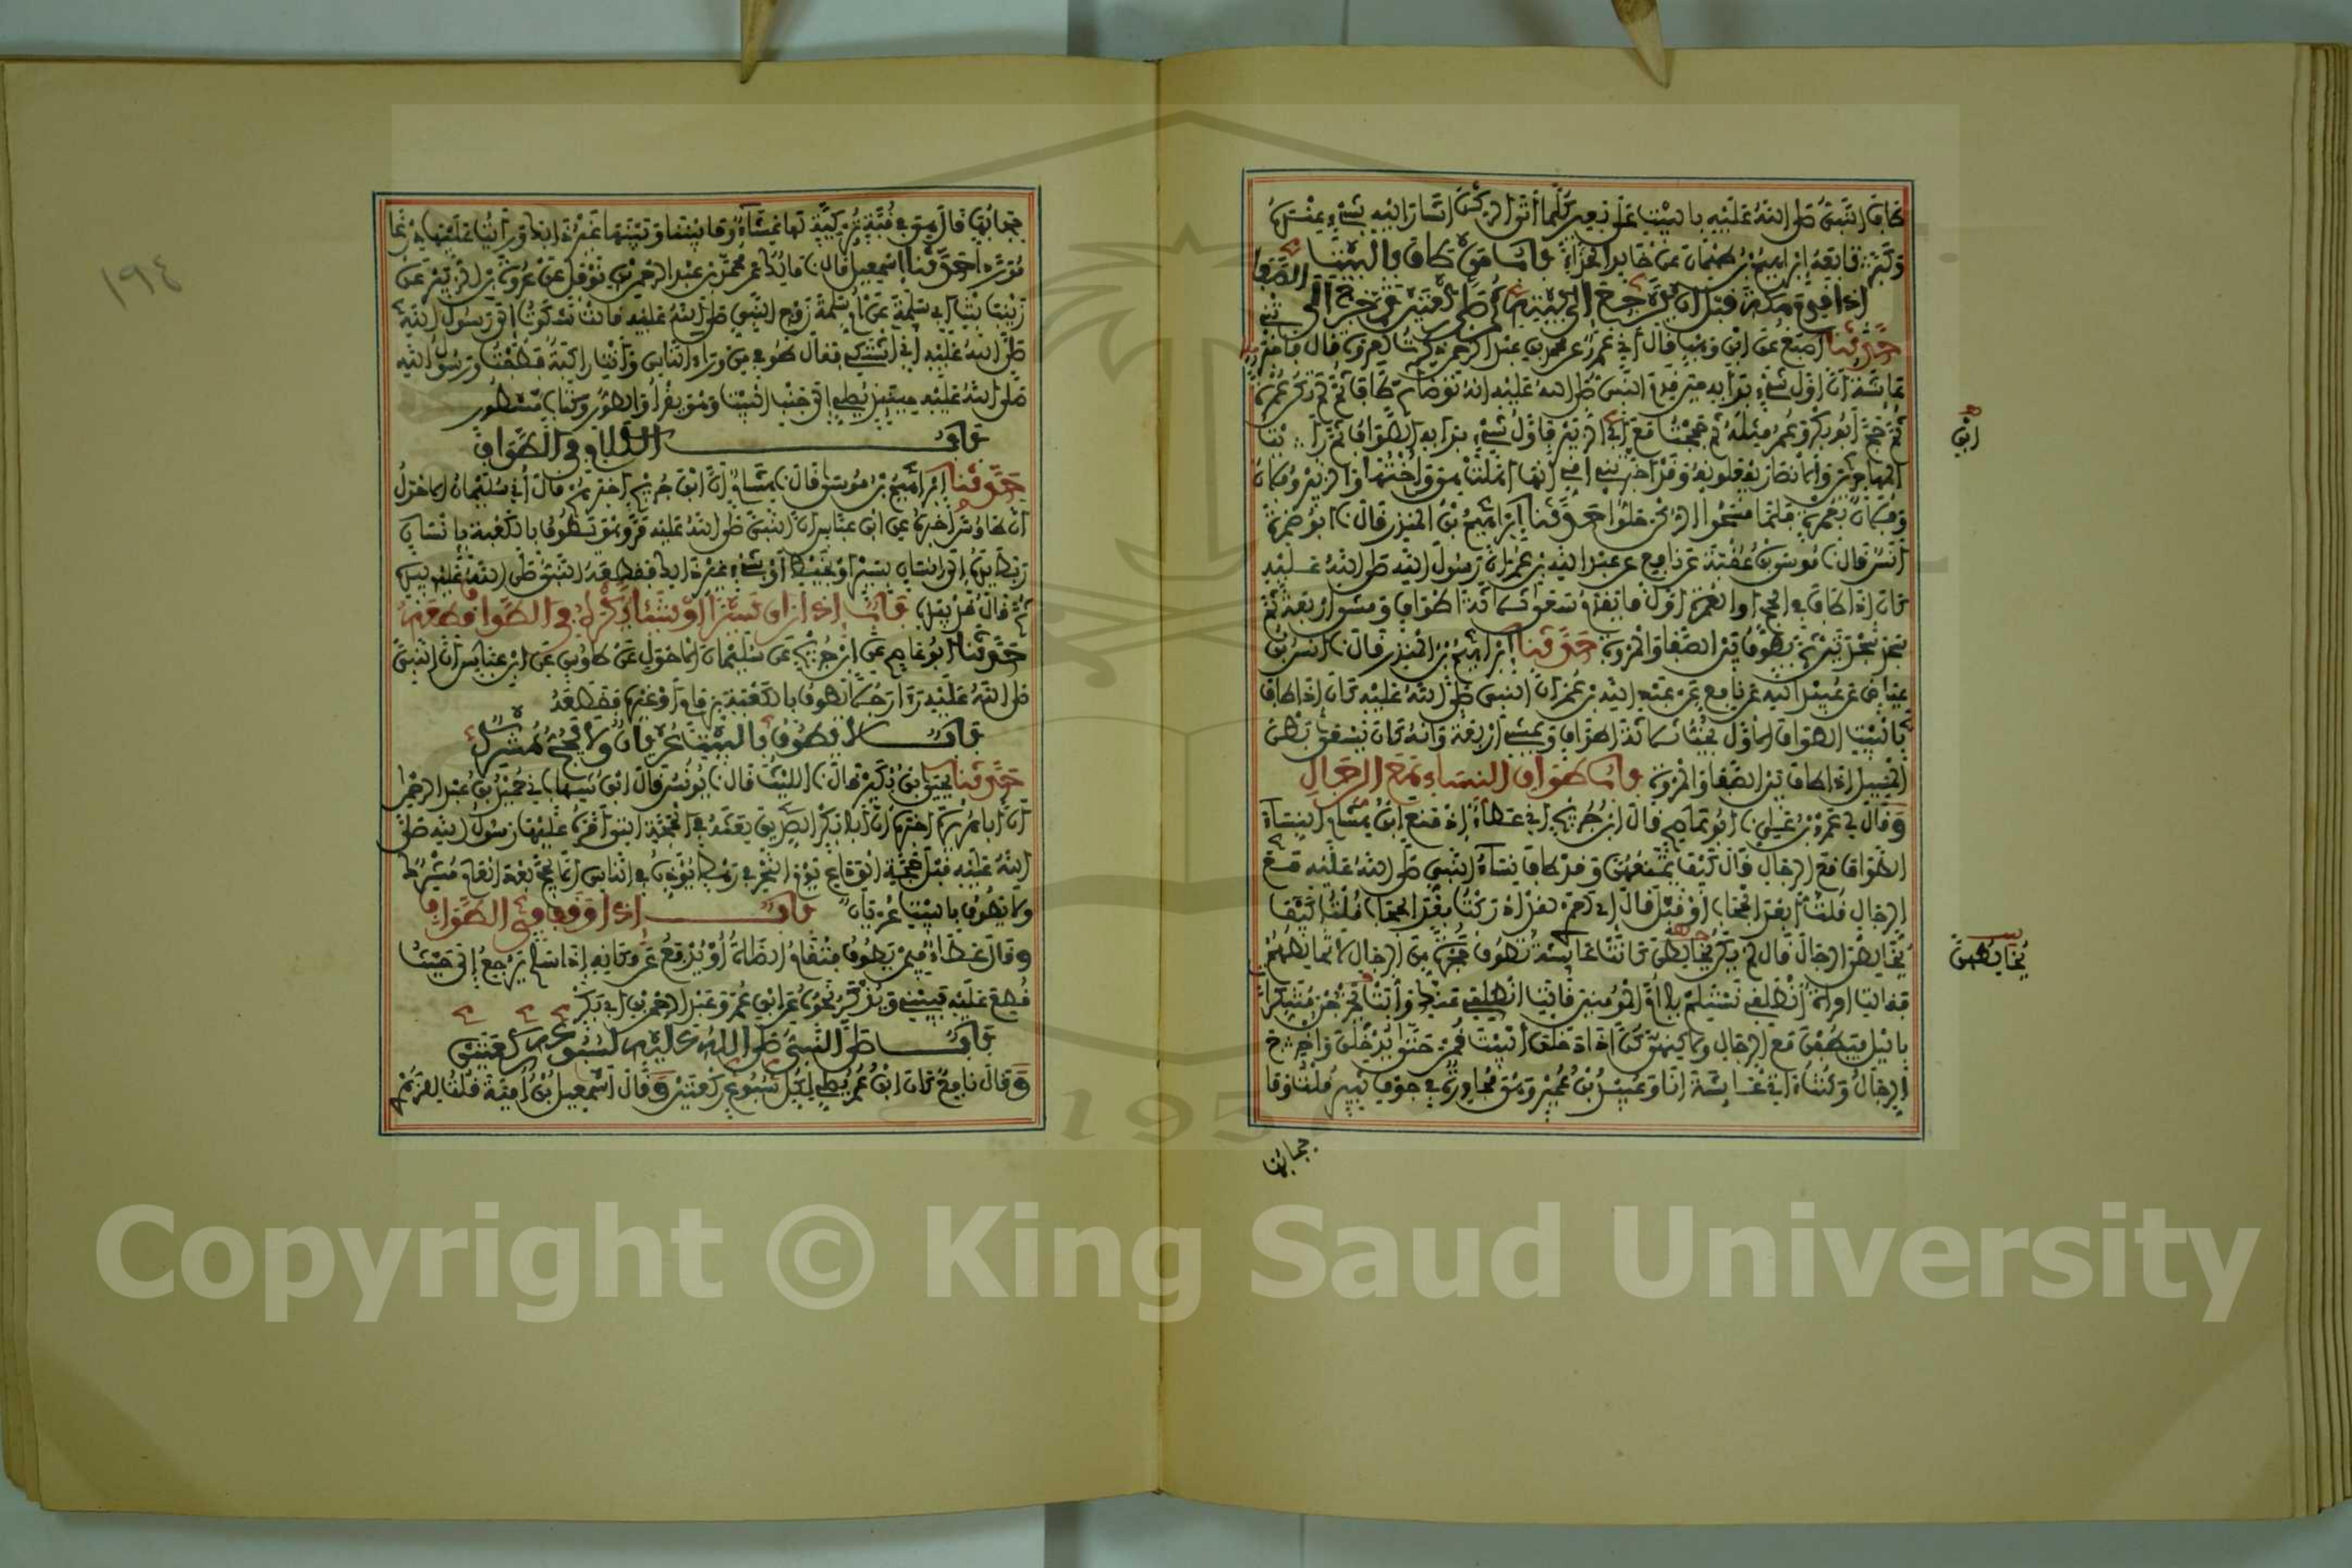 طاف النبي صلى الله عليه بالبيت على بعير كلما أتى الركن أشار إليه بشيء عنده
وكبر تابعه إبراهيم بن طهمان عن خالد الحذاء باب من طاف بالبيت
إذا قدم مكة قبل أن يرجع إلى بيته ثم صلى ركعتين ثم خرج إلى الصفا
حدثنا أصبغ عن ابن وهب قال أني عمرو عن محمد بن عبد الرحمن ذكرت لعروة قال فأخبرتني
عائشة أن أول شيء بدأ به حين قدم النبي صلى الله عليه أنه توضأ ثم طاف ثم لم تكن عمرة
ثم حج أبو بكر وعمر مثله ثم حججت مع أبي الزبير فأول شيء بدأ به الطواف ثم رأيت
المهاجرين والأنصار يفعلونه وقد أخبرتني أمي أنها أهلت هي وأختها والزبير وفلان
وفلان بعمرة فلما مسحوا الركن حلوا حدثنا إبراهيم بن المنذر قال نا أبو ضمرة
أنس قال نا موسى بن عقبة عن نافع عن عبد الله بن عمر أن رسول الله صلى الله عليه
كان إذا طاف في الحج أو العمرة أول ما يقدم سعى ثلاثة أطواف ومشى أربعة ثم
سجد سجدتين ثم يطوف بين الصفا والمروة حدثنا إبراهيم بن المنذر قال نا أنس بن
عياض عن عبيد الله عن نافع عن عبد الله بن عمر أن النبي صلى الله عليه كان إذا طاف
بالبيت الطواف الأول يخب ثلاثة أطواف ويمشي أربعة وأنه كان يسعى بطن
المسيل إذا طاف بين الصفا والمروة باب طواف النساء مع الرجال
وقال لي عمرو بن علي نا أبو عاصم قال ابن جريج أني عطاء إذ منع ابن هشام النساء
الطواف مع الرجال قال كيف يمنعهن وقد طاف نساء النبي صلى الله عليه مع
الرجال قلت أبعد الحجاب أو قبل قال إي لعمري لقد أدركته بعد الحجاب قلت كيف
يخالطن الرجال قال لم يكن يخالطن كانت عائشة تطوف حجرة من الرجال لا تخالطهم
فقالت امرأة انطلقي نستلم يا أم المؤمنين قالت انطلقي عنك وأبت يخرجن متنكرات
بالليل فيطفن مع الرجال ولكنهن كن إذا دخلن البيت قمن حتى يدخلن وأخرج
الرجال وكنت آتي عائشة أنا وعبيد بن عمير وهي مجاورة في جوف ثبير قلت وما
حجابها
ابن
يخالطهن
١٩٤
حجابها قال هي في قبة تركية لها غشاء وما بيننا وبينها غير ذلك ورأيت عليها درعا
موردا حدثنا إسمعيل قال نا مالك عن محمد بن عبد الرحمن بن نوفل عن عروة بن الزبير عن
زينب بنت أبي سلمة عن أم سلمة زوج النبي صلى الله عليه قالت شكوت إلى رسول الله
صلى الله عليه أني أشتكي فقال طوفي من وراء الناس وأنت راكبة فطفت ورسول الله
صلى الله عليه حينئذ يصلي إلى جنب البيت وهو يقرأ والطور وكتاب مسطور
باب الكلام في الطواف
حدثنا إبراهيم بن موسى قال نا هشام أن ابن جريج أخبرهم قال أني سليمان الأحول
أن طاوسا أخبره عن ابن عباس أن النبي صلى الله عليه مر وهو يطوف بالكعبة بإنسان
ربط يده إلى إنسان بسير أو بخيط أو بشيء غير ذلك فقطعه النبي صلى الله عليه بيده
ثم قال قد بيده باب إذا رأى سيرا أو شيئا يكره في الطواف قطعه
حدثنا أبو عاصم عن ابن جريج عن سليمان الأحول عن طاوس عن ابن عباس أن النبي
صلى الله عليه رأى رجلا يطوف بالكعبة بزمام أو غيره فقطعه
باب لا يطوف بالبيت عريان ولا يحج مشرك
حدثنا يحيى بن بكير قال نا الليث قال نا يونس قال ابن شهاب ني حميد بن عبد الرحمن
أن أبا هريرة أخبره أن أبا بكر الصديق بعثه في الحجة التي أمره عليها رسول الله صلى
الله عليه قبل حجة الوداع يوم النحر في رهط يؤذن في الناس ألا يحج بعد العام مشرك
ولا يطوف بالبيت عريان باب إذا وقف في الطواف
وقال عطاء فيمن يطوف فتقام الصلاة أو يدفع عن مكانه إذا سلم يرجع إلى حيث
قطع عليه فيبني ويذكر نحوه عن ابن عمر وعبد الرحمن بن أبي بكر
باب صلى النبي صلى الله عليه لسبوعه ركعتين
وقال نافع كان ابن عمر يصلي لكل سبوع ركعتين وقال إسمعيل بن أمية قلت للزهري
Copyright © King Saud University